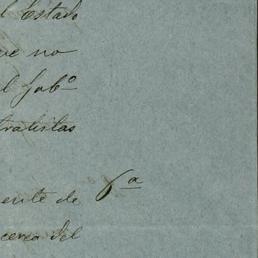 l Estado
ue no
l Gobº
tratistas
ente de 6ª
cerca del